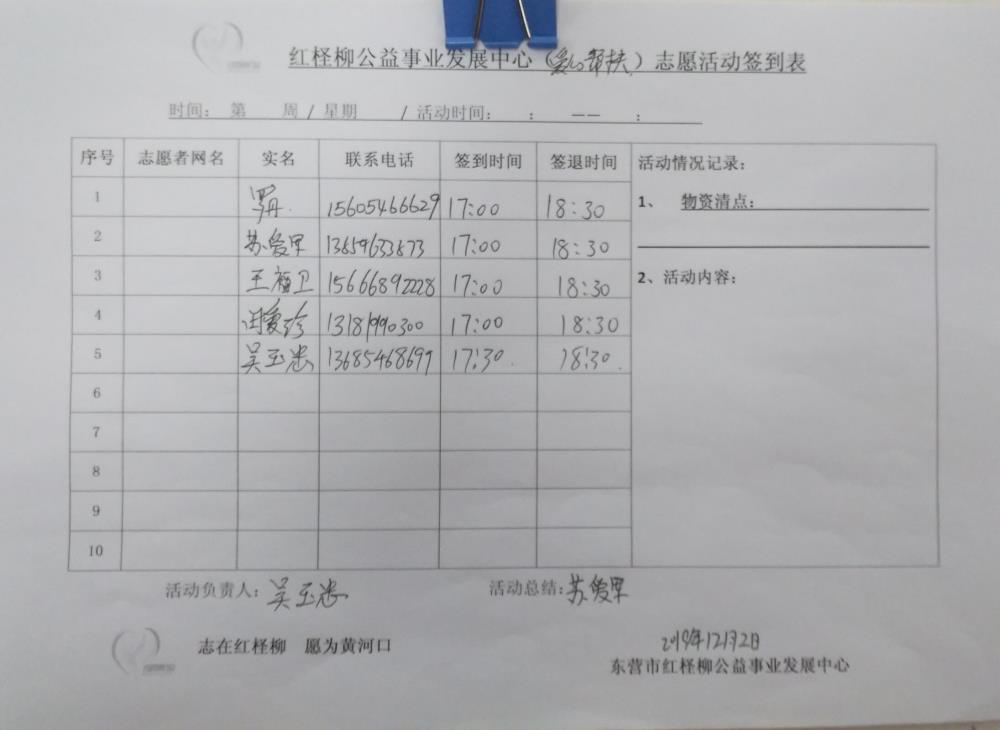 红柽柳公益事业发展中心（爱心帮扶）志愿活动签到表
时间： 第 周 / 星期 / 活动时间： ： —— ：
序号 志愿者网名 实名 联系电话 签到时间 签退时间 活动情况记录：
1 罗丹. 15605466629 17:00 18:30 1、 物资清点：
2 苏爱军 13659633673 17:00 18:30
3 王福卫 15666892228 17:00 18:30 2、活动内容：
4 田爱珍 13181990300 17:00 18:30
5 吴玉忠 13685468699 17:30. 18:30.
6
7
8
9
10
活动负责人：吴玉忠 活动总结：苏爱军
志在红柽柳 愿为黄河口
2019年12月2日
东营市红柽柳公益事业发展中心